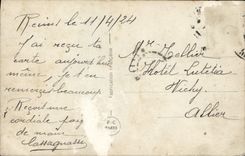 Reims le 11/4/24
J'ai reçu ta
carte aujourd'hui
même, je t'en
remercie beaucoup
Reçois une
cordiale poig
de main
Cassagnasse
Mr Tellier
Hôtel Lutetia
Vichy
Allier
P-C
PARIS